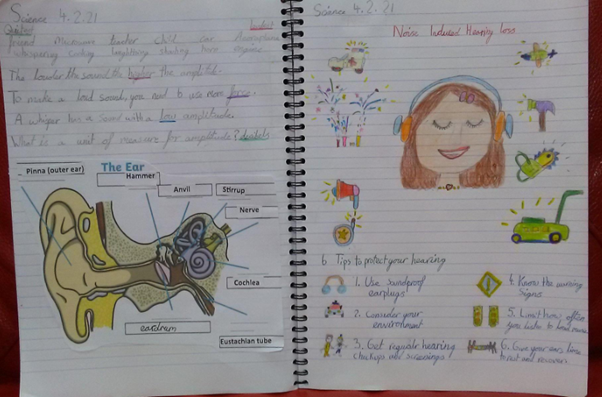 Science 4.2.21
Quietest
loudest
person Microwave thunder child car
whispering cooking lightning shouting horn engine
The louder the sound the higher the amplitude.
To make a loud sound, you need to use more force.
A whisper has a sound with a low amplitude.
What is a unit of measure for amplitude? decibels
The Ear
Pinna (outer ear)
Hammer
Anvil
Stirrup
Nerve
Cochlea
eardrum
Eustachian tube
Science 4.2.21
Noise Induced Hearing loss
6 Tips to protect your hearing
1. Use soundproof
earplugs
2. Consider your
environment
3. Get regular hearing
checkups and screenings
4. Know the warning
signs
5. Limit how often
you listen to loud
6. Give your ears time
to rest and recover